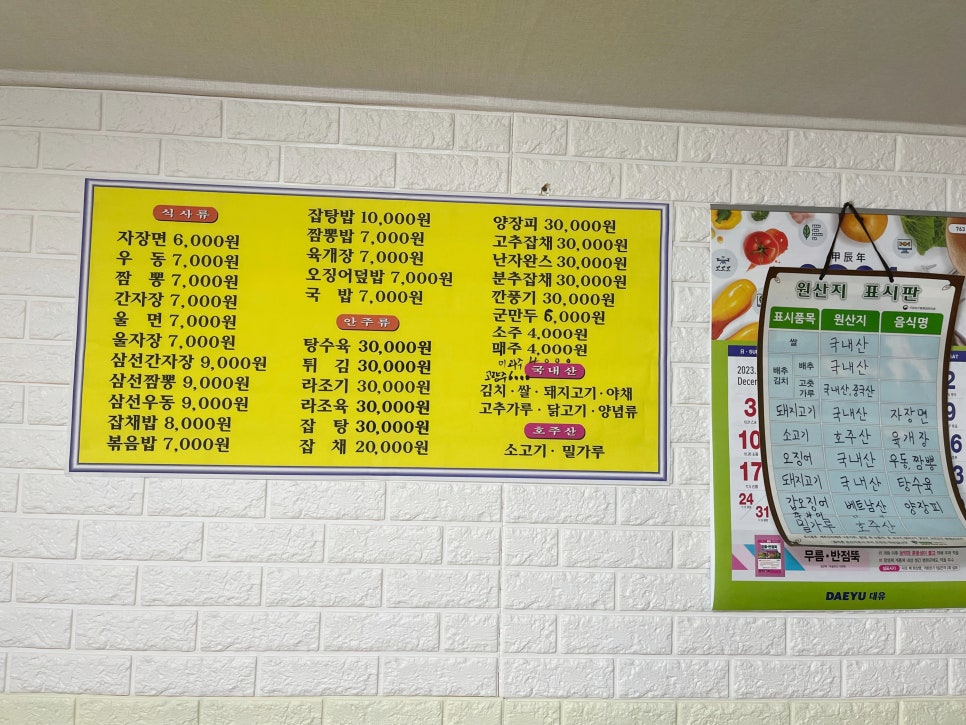 식사류
자장면 6,000원
우 동 7,000원
짬 뽕 7,000원
간자장 7,000원
울 면 7,000원
울자장 7,000원
삼선간자장 9,000원
삼선짬뽕 9,000원
삼선우동 9,000원
잡채밥 8,000원
볶음밥 7,000원
잡탕밥 10,000원
짬뽕밥 7,000원
육개장 7,000원
오징어덮밥 7,000원
국 밥 7,000원
안주류
탕수육 30,000원
튀 김 30,000원
라조기 30,000원
라조육 30,000원
잡 탕 30,000원
잡 채 20,000원
양장피 30,000원
고추잡채 30,000원
난자완스 30,000원
분추잡채 30,000원
깐풍기 30,000원
군만두 6,000원
소주 4,000원
매주 4,000원
국내산
김치·쌀·돼지고기·야채
고추가루·닭고기·양념류
호주산
소고기·밀가루
甲辰年
763
원산지 표시판
표시품목 원산지 음식명
쌀 국내산
배추김치 배추 국내산
고춧가루 국내산,중국산
돼지고기 국내산 자장면
소고기 호주산 육개장
오징어 국내산 우동,짬뽕
돼지고기 국내산 탕수육
갑오징어 베트남산 양장피
밀가루 호주산
2023.
3
10
17
24
31
2
9
무름·반점뚝
DAEYU 대유